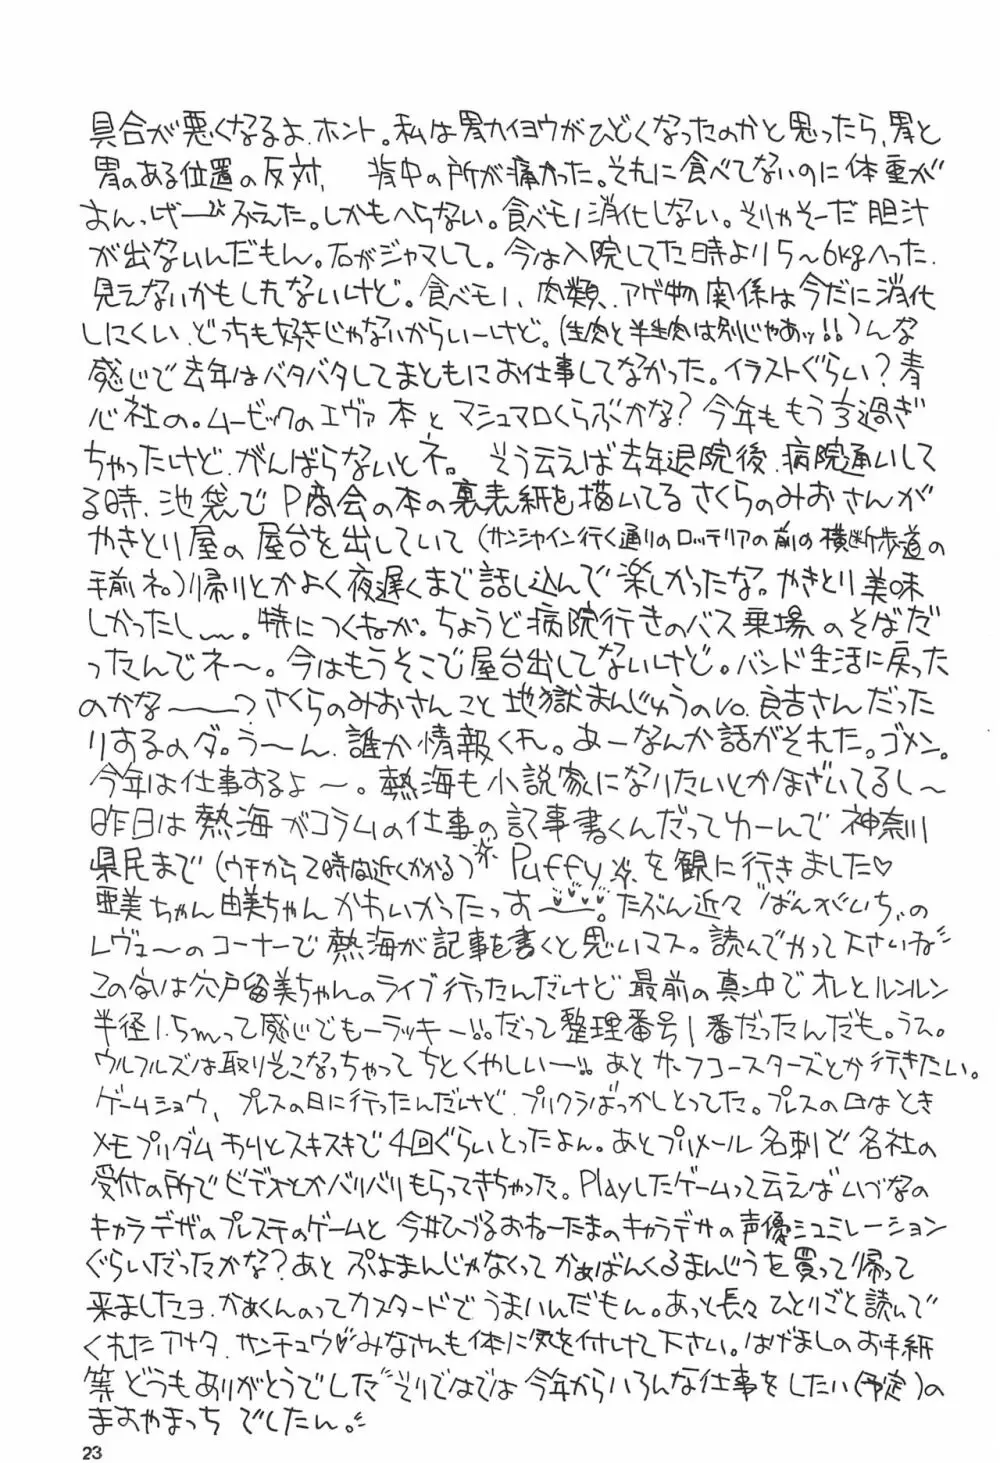 具合が悪くなるよ、ホント。私は胃カイヨウがひどくなったのかと思ったら、胃と
胃のある位置の反対、背中の所が痛かった。それに食べてないのに体重が
よんっげーびふえた。しかもへらない。食べモノ消化しない。そりゃそーだ胆汁
が出ないんだもん。石がジャマして。今は入院してた時より5〜6kgへった、
見えないかもしれないけど。食べモノ、肉類、アゲ物関係は今だに消化
しにくい、どっちも好きじゃないからいーけど。(生肉と半生肉は別じゃあッ!!)んな
感じで去年はバタバタしてまともにお仕事してなかった。イラストぐらい?青
心社の。ムービックのエヴァ本とマシュマロくらぶかな?今年ももう⅓過ぎ
ちゃったけど、がんばらないとネ。そう云えば去年退院後、病院通いして
る時、池袋でP商会の本の裏表紙を描いてるさくらのみおさんが
やきとり屋の屋台を出していて(サンシャイン行く通りのロッテリアの前の横断歩道の
手前ネ。)帰りとかよく夜遅くまで話し込んで楽しかったな。やきとり美味
しかったし〜〜。特につくねが。ちょうど病院行きのバス乗場のそばだ
ったんでネ〜。今はもうそこで屋台出してないけど。バンド生活に戻った
のかな〜〜?さくらのみおさんこと地獄まんじゅうのVo.良吉さんだった
りするのダ。う〜ん、誰か情報くれ。あーなんか話がそれた。ゴメン。
今年は仕事するよ〜。熱海も小説家になりたいとかほざいてるし〜
昨日は熱海がコラムの仕事の記事書くんだってゆーんで神奈川
県民まで(ウチから2時間近くかかる)Puffyを観に行きました♡
亜美ちゃん由美ちゃんかわいかったっす〜♡♡♡。たぶん近々"ばんがいち"の
レヴューのコーナーで熱海が記事を書くと思いマス。読んでやって下さいね
この前は宍戸留美ちゃんのライブ行ったんだけど最前の真ン中でオレとルンルン
半径1.5mって感じでもーラッキー!!だって整理番号1番だったんだも。うふ。
ウルフルズは取りそこなっちゃってちとくやしいー!!あとサーフコースターズとか行きたい。
ゲームショウ、プレスの日に行ったんだけど、プリクラばっかしとってた。プレスの日はとき
メモプリダムありとスキスキで4回ぐらいとったよん。あとプリメール名刺で各社の
受付の所でビデオとかバリバリもらってきちゃった。Playしたゲームって云えばいづなの
キャラデザのプレステのゲームと今井ひづるおねーたまのキャラデサの声優シュミレーション
ぐらいだったかな?あとぷよまんじゃなくってかぁばんくるまんじうを買って帰って
来ましたヨ、かぁくんのってカスタードでうまいんだもん。あっと長々ひとりごと読んで
くれたアナタ、サンチュウ♡みなさんも体に気を付けて下さい。はげましのお手紙
等どうもありがとうでしたマ そりではでは今年からいろんな仕事をしたい(予定)の
まおやまっちでしたん。
23